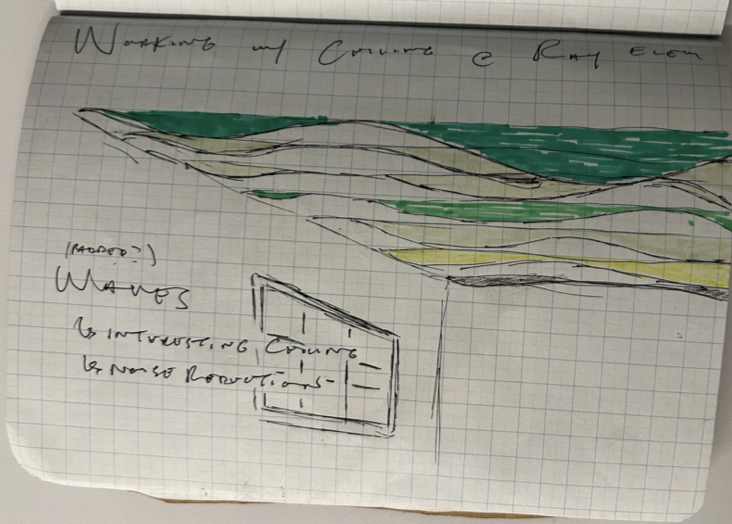 WORKING w/ CEILING @ RAY ELEM
(PADDED?)
WAVES
↳ INTERESTING CEILING
↳ NOISE REDUCTIONS